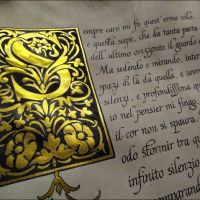 Sempre caro mi fu quest'ermo colle
e questa siepe, che da tanta parte
dell'ultimo orizzonte il guardo
Ma sedendo e mirando, inter
spazi di là da quella, e sovr
silenzi, e profondissima qu
io nel pensier mi fingo
il cor non si spaura.
odo stormir tra qu
infinito silenzio
comparando